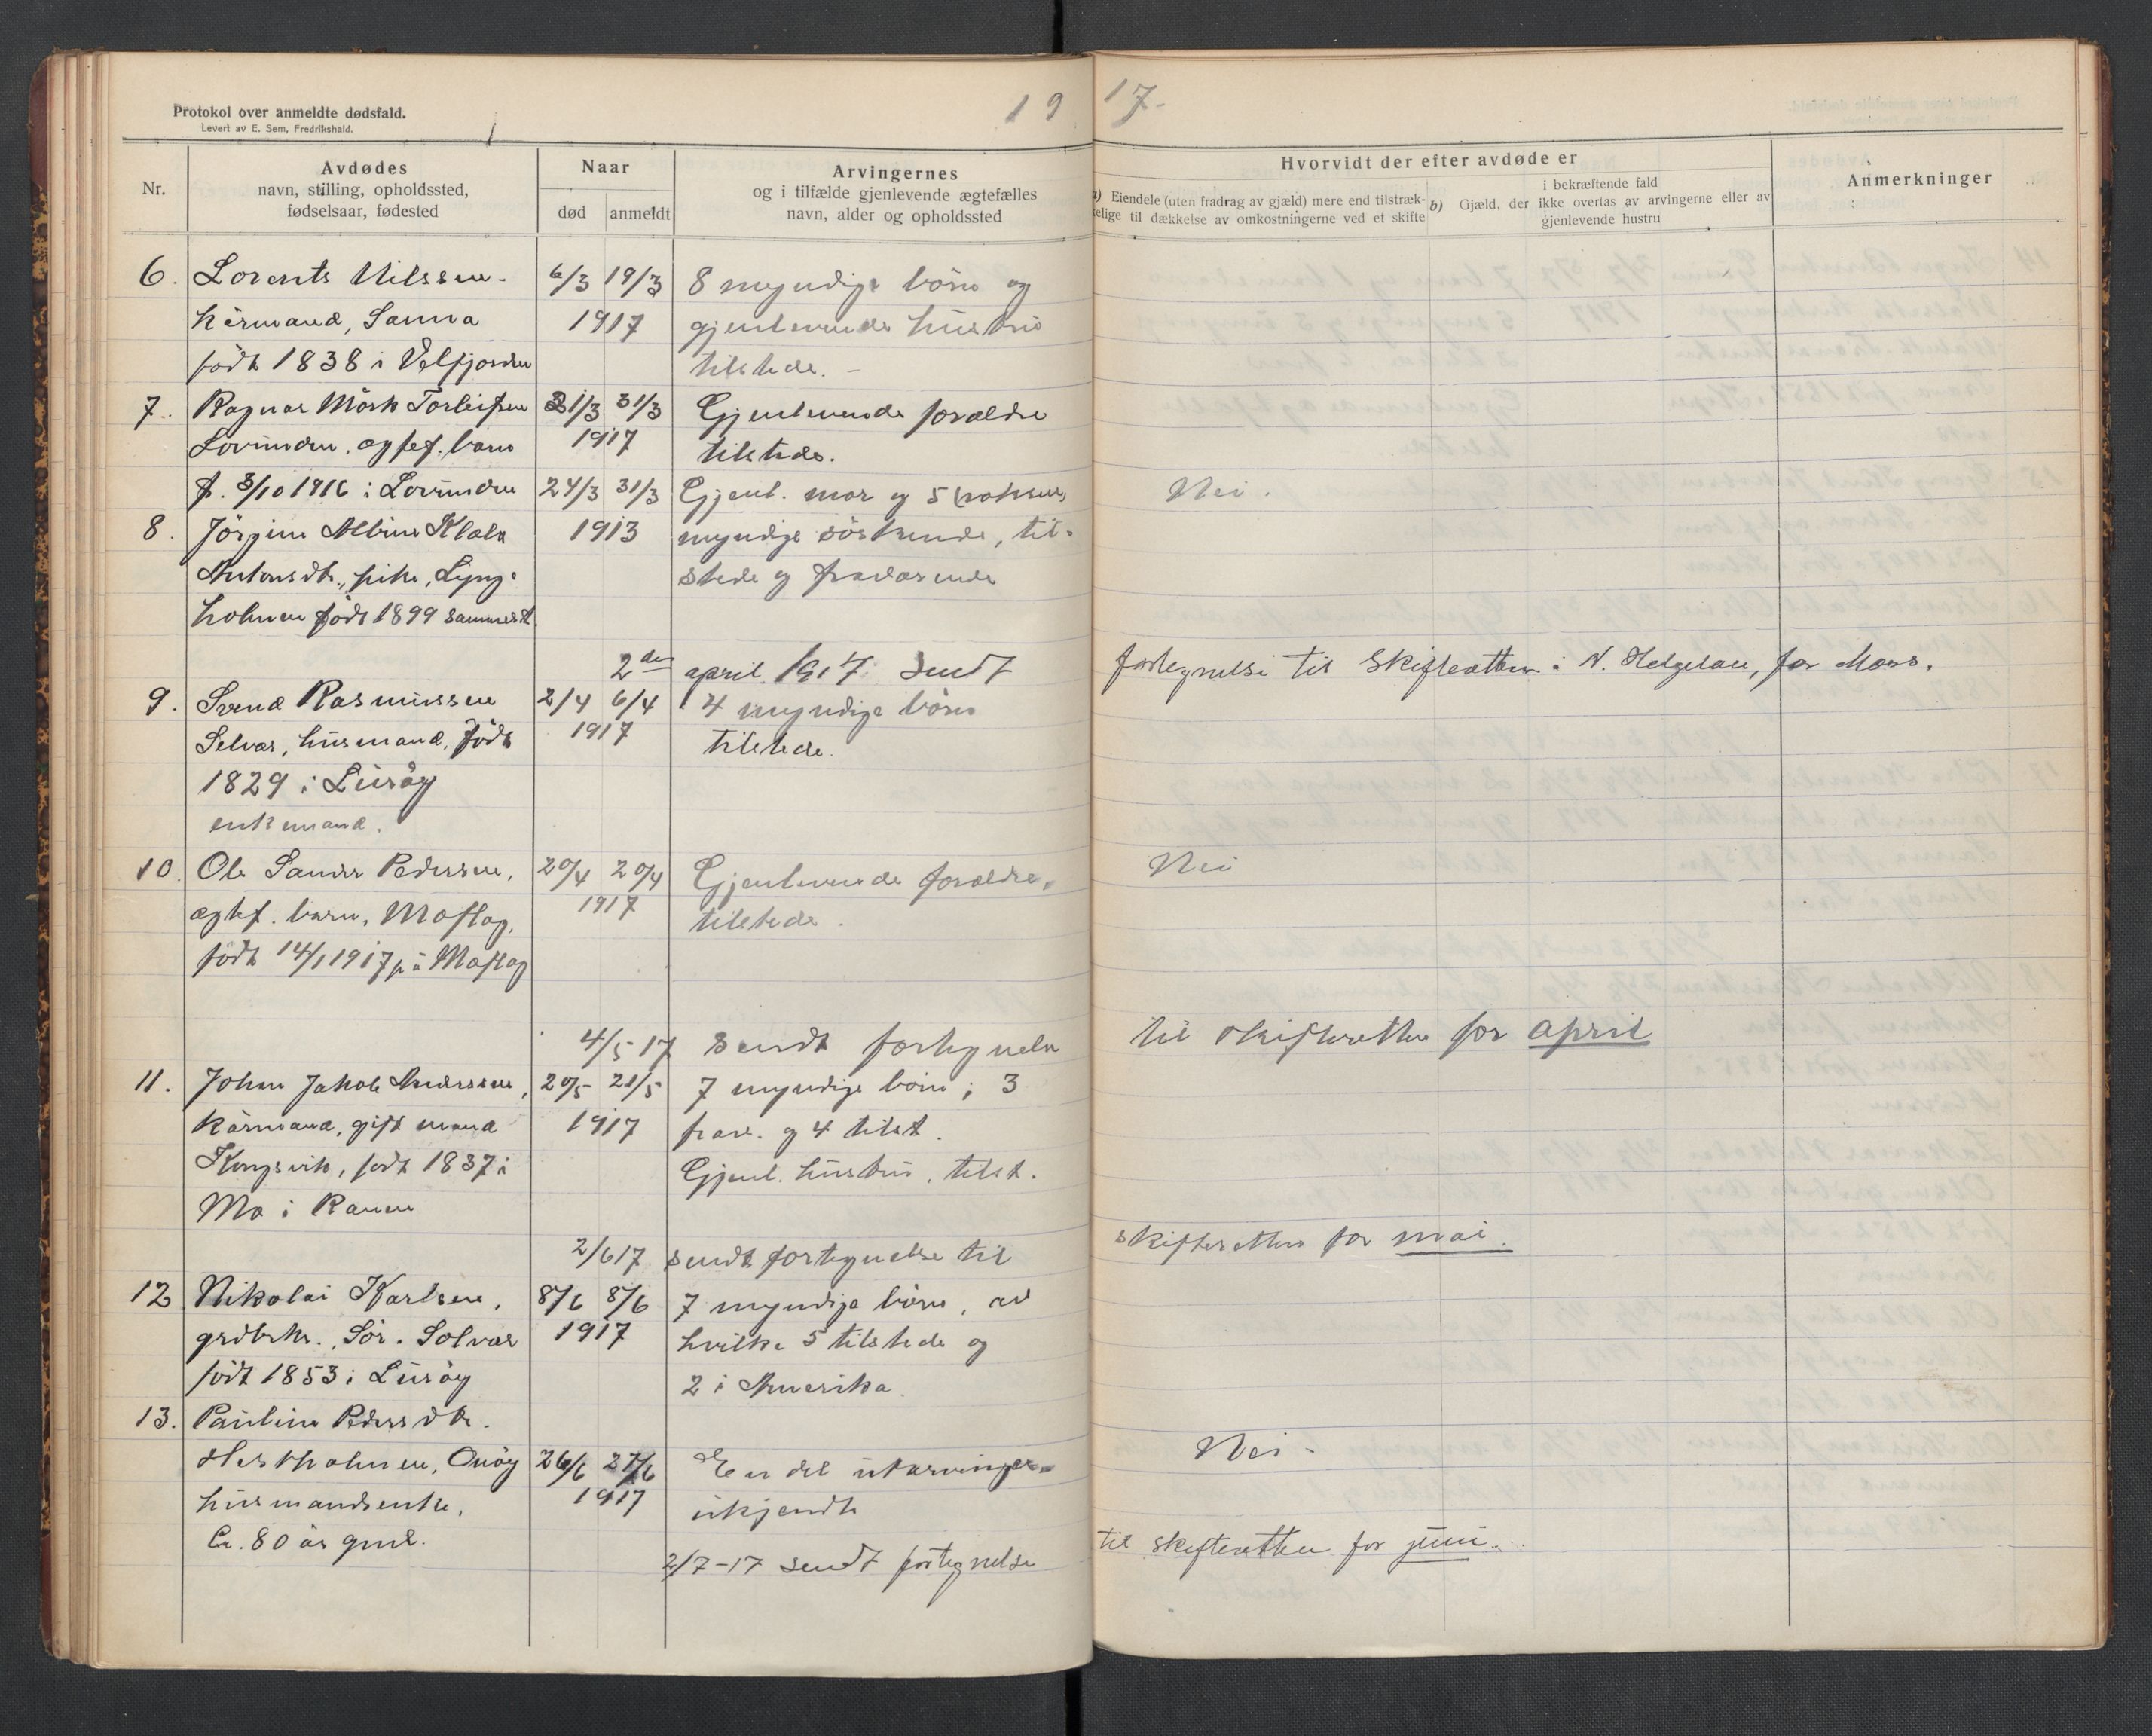 Protokol over anmeldte dødsfald.
Levert av E. Sem, Fredrikshald.
19 17-
Nr.
Avdødes
navn, stilling, opholdssted,
fødselsaar, fødested
Naar
død anmeldt
Arvingernes
og i tilfælde gjenlevende ægtefælles
navn, alder og opholdssted
Hvorvidt der efter avdøde er
a) Eiendele (uten fradrag av gjæld) mere end tilstræk-
kelige til dækkelse av omkostningerne ved et skifte
b) Gjæld, der i bekræftende fald
ikke overtas av arvingerne eller av
gjenlevende hustru
Anmerkninger
6. Lorents Nilssen - 6/3 19/3 8 myndige börn og
kårmand, Sanna 1917 gjenlevende hustru
födt 1838 i Velfjorden tilstede. -
7. Ragnar Mörk Torleifsen 31/3 Gjenlevende forældre
Lovunden, ægtef. barn 1917 tilstede.
f. 3/10 1916 i Lovunden 24/3 31/3 Gjenl. mor og 5 Nei.
8. Jörgine Albine 1913 myndige söskende, til-
Antonsdtr., pike, Lyng- stede og fraværende
holmen födt 1899 sammest.
2den april 1917 sendt fortegnelse til Skifteretten i N. Helgeland, for Mars.
9. Svend Rasmussen 2/4 6/4 4 myndige börn
Selvær, husmand, födt 1917 tilstede.
1829 i Luröy
enkemand.
10. Ole Sander Pedersen, 20/4 20/4 Gjenlevende forældre Nei
ægtef. barn, Moflag, 1917 tilstede.
födt 14/1 1917 på Moflag
4/5 17 sendt fortegnelse til skifteretten for april
11. Johan Jakob Andersen, 20/5 21/5 7 myndige börn; 3
kårmand, gift mand 1917 frav. og 4 tilst.
Kongsvik, födt 1837 i Gjenl. hustru, tilst.
Mo i Ranen
2/6 17 sendt fortegnelse til skifteretten for mai.
12 Nikolai Karlsen, 8/6 8/6 7 myndige börn, av
grdbrkr. Sör-Solvær 1917 hvilke 5 tilstede og
födt 1853 i Luröy 2 i Amerika.
13. Pauline Pedersdtr.
Hestholmen, Onöy 26/6 27/6 En del utarvinger- Nei-
husmandsenke, 1917 ukjendt
Ca. 80 år gml.
2/7-17 sendt fortegnelse til skifteretten for juni.